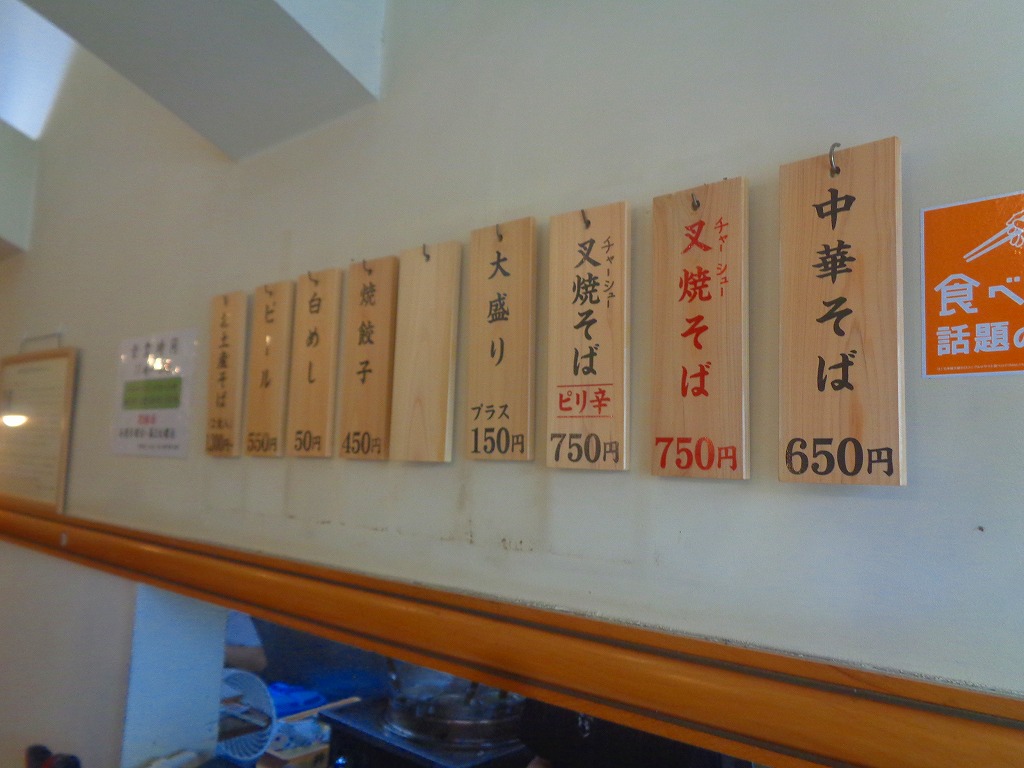 中華そば
650円
チャーシュー
叉焼そば
750円
チャーシュー
叉焼そば
ピリ辛
750円
大盛り
プラス
150円
焼餃子
450円
白めし
50円
ビール
550円
お土産そば
食べ
話題の